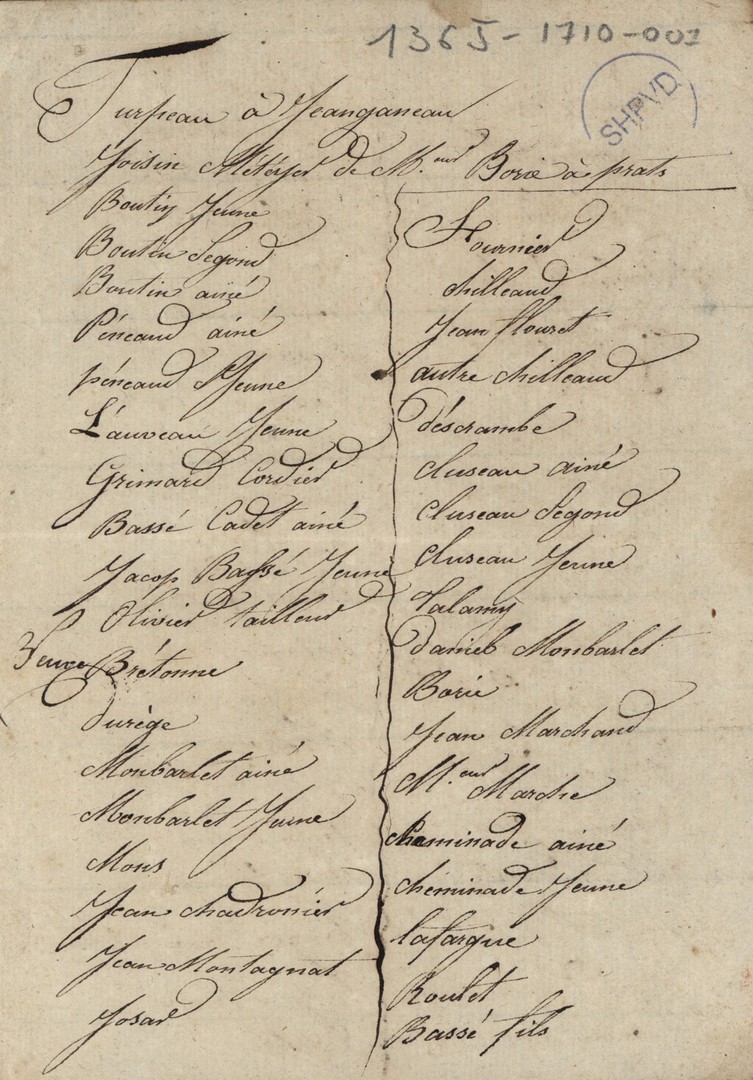 1365-1710-001
SHPVD
Turpeau à Jeanganeau
Voisin Météyer de M.eur Borie à prats
Boutin Jeune
Boutin Segond
Boutin ainé
Péneaud ainé
péneaud Jeune
Lauveau Jeune
Grimard Cordier
Bassé Cadet ainé
Jacop Bassé Jeune
Olivier tailleur
Veuve Brétonne
durège
Monbarlet ainé
Monbarlet Jeune
Mons
Jean chadronier
Jean Montagnat
Josard
Fournier
chilleaud
Jean flouret
autre chilleaud
déscrambe
cluseau ainé
cluseau Segond
cluseau Jeune
Talamy
daniel Monbarlet
Borie
Jean Marchand
M.eur Marche
cheminade ainé
cheminade Jeune
lafargue
Roulet
Bassé fils